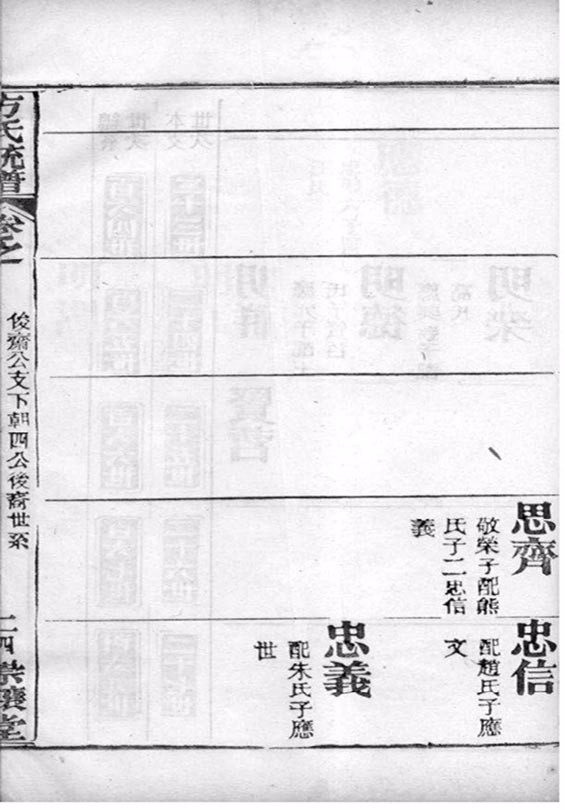 思齊
敬榮子配熊
氏子二忠信
義
忠信
配趙氏子應
文
忠義
配朱氏子應
世
方氏統譜
卷之
俊齋公支下朝四公後裔世系
二四
堂